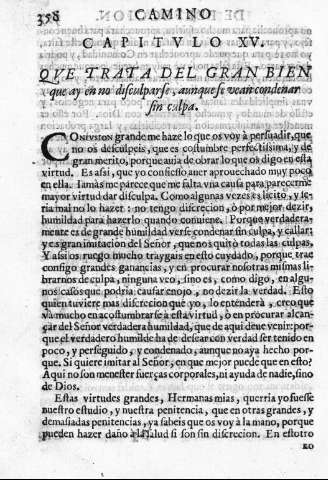 358 CAMINO
CAPITVLO XV.
QVE TRATA DEL GRAN BIEN
que ay en no disculparse, aunque se vean condenar
sin culpa.
CONfusion grande me haze lo que os voy à persuadir, que
no os desculpeis, que es costumbre perfectissima, y de
gran merito, porque auia de obrar lo que os digo en esta
virtud. Es assi, que yo confiesso auer aprouechado muy poco
en ella. Iamàs me parece que me falta vna causa para parecerme
mayor virtud dar disculpa. Como algunas vezes es licito, y se-
ria mal no lo hazer: no tengo discrecion, ò por mejor dezir,
humildad para hazerlo quando conuiene. Porque verdadera-
mente es de grande humildad verse condenar sin culpa, y callar:
y es gran imitacion del Señor, que nos quitò todas las culpas.
Y assi os ruego mucho traygais en esto cuydado, porque trae
consigo grandes ganancias, y en procurar nosotras mismas li-
brarnos de culpa, ninguna veo, sino es, como digo, en algu-
nos casos que podria causar enojo, no dezir la verdad. Esto
quien tuuiere mas discrecion que yo, lo entenderà, creo que
và mucho en acostumbrarse à esta virtud, ò en procurar alcan-
çar del Señor verdadera humildad, que de aqui deue venir: por-
que el verdadero humilde ha de desear con verdad ser tenido en
poco, y perseguido, y condenado, aunque no aya hecho por-
que. Si quiere imitar al Señor, en que mejor puede que en esto?
Aqui no son menester fuerças corporales, ni ayuda de nadie, sino
de Dios.
Estas virtudes grandes, Hermanas mias, querria yo fuesse
nuestro estudio, y nuestra penitencia, que en otras grandes, y
demasiadas penitencias, ya sabeis que os voy à la mano, porque
pueden hazer daño à la salud si son sin discrecion. En estotro
no